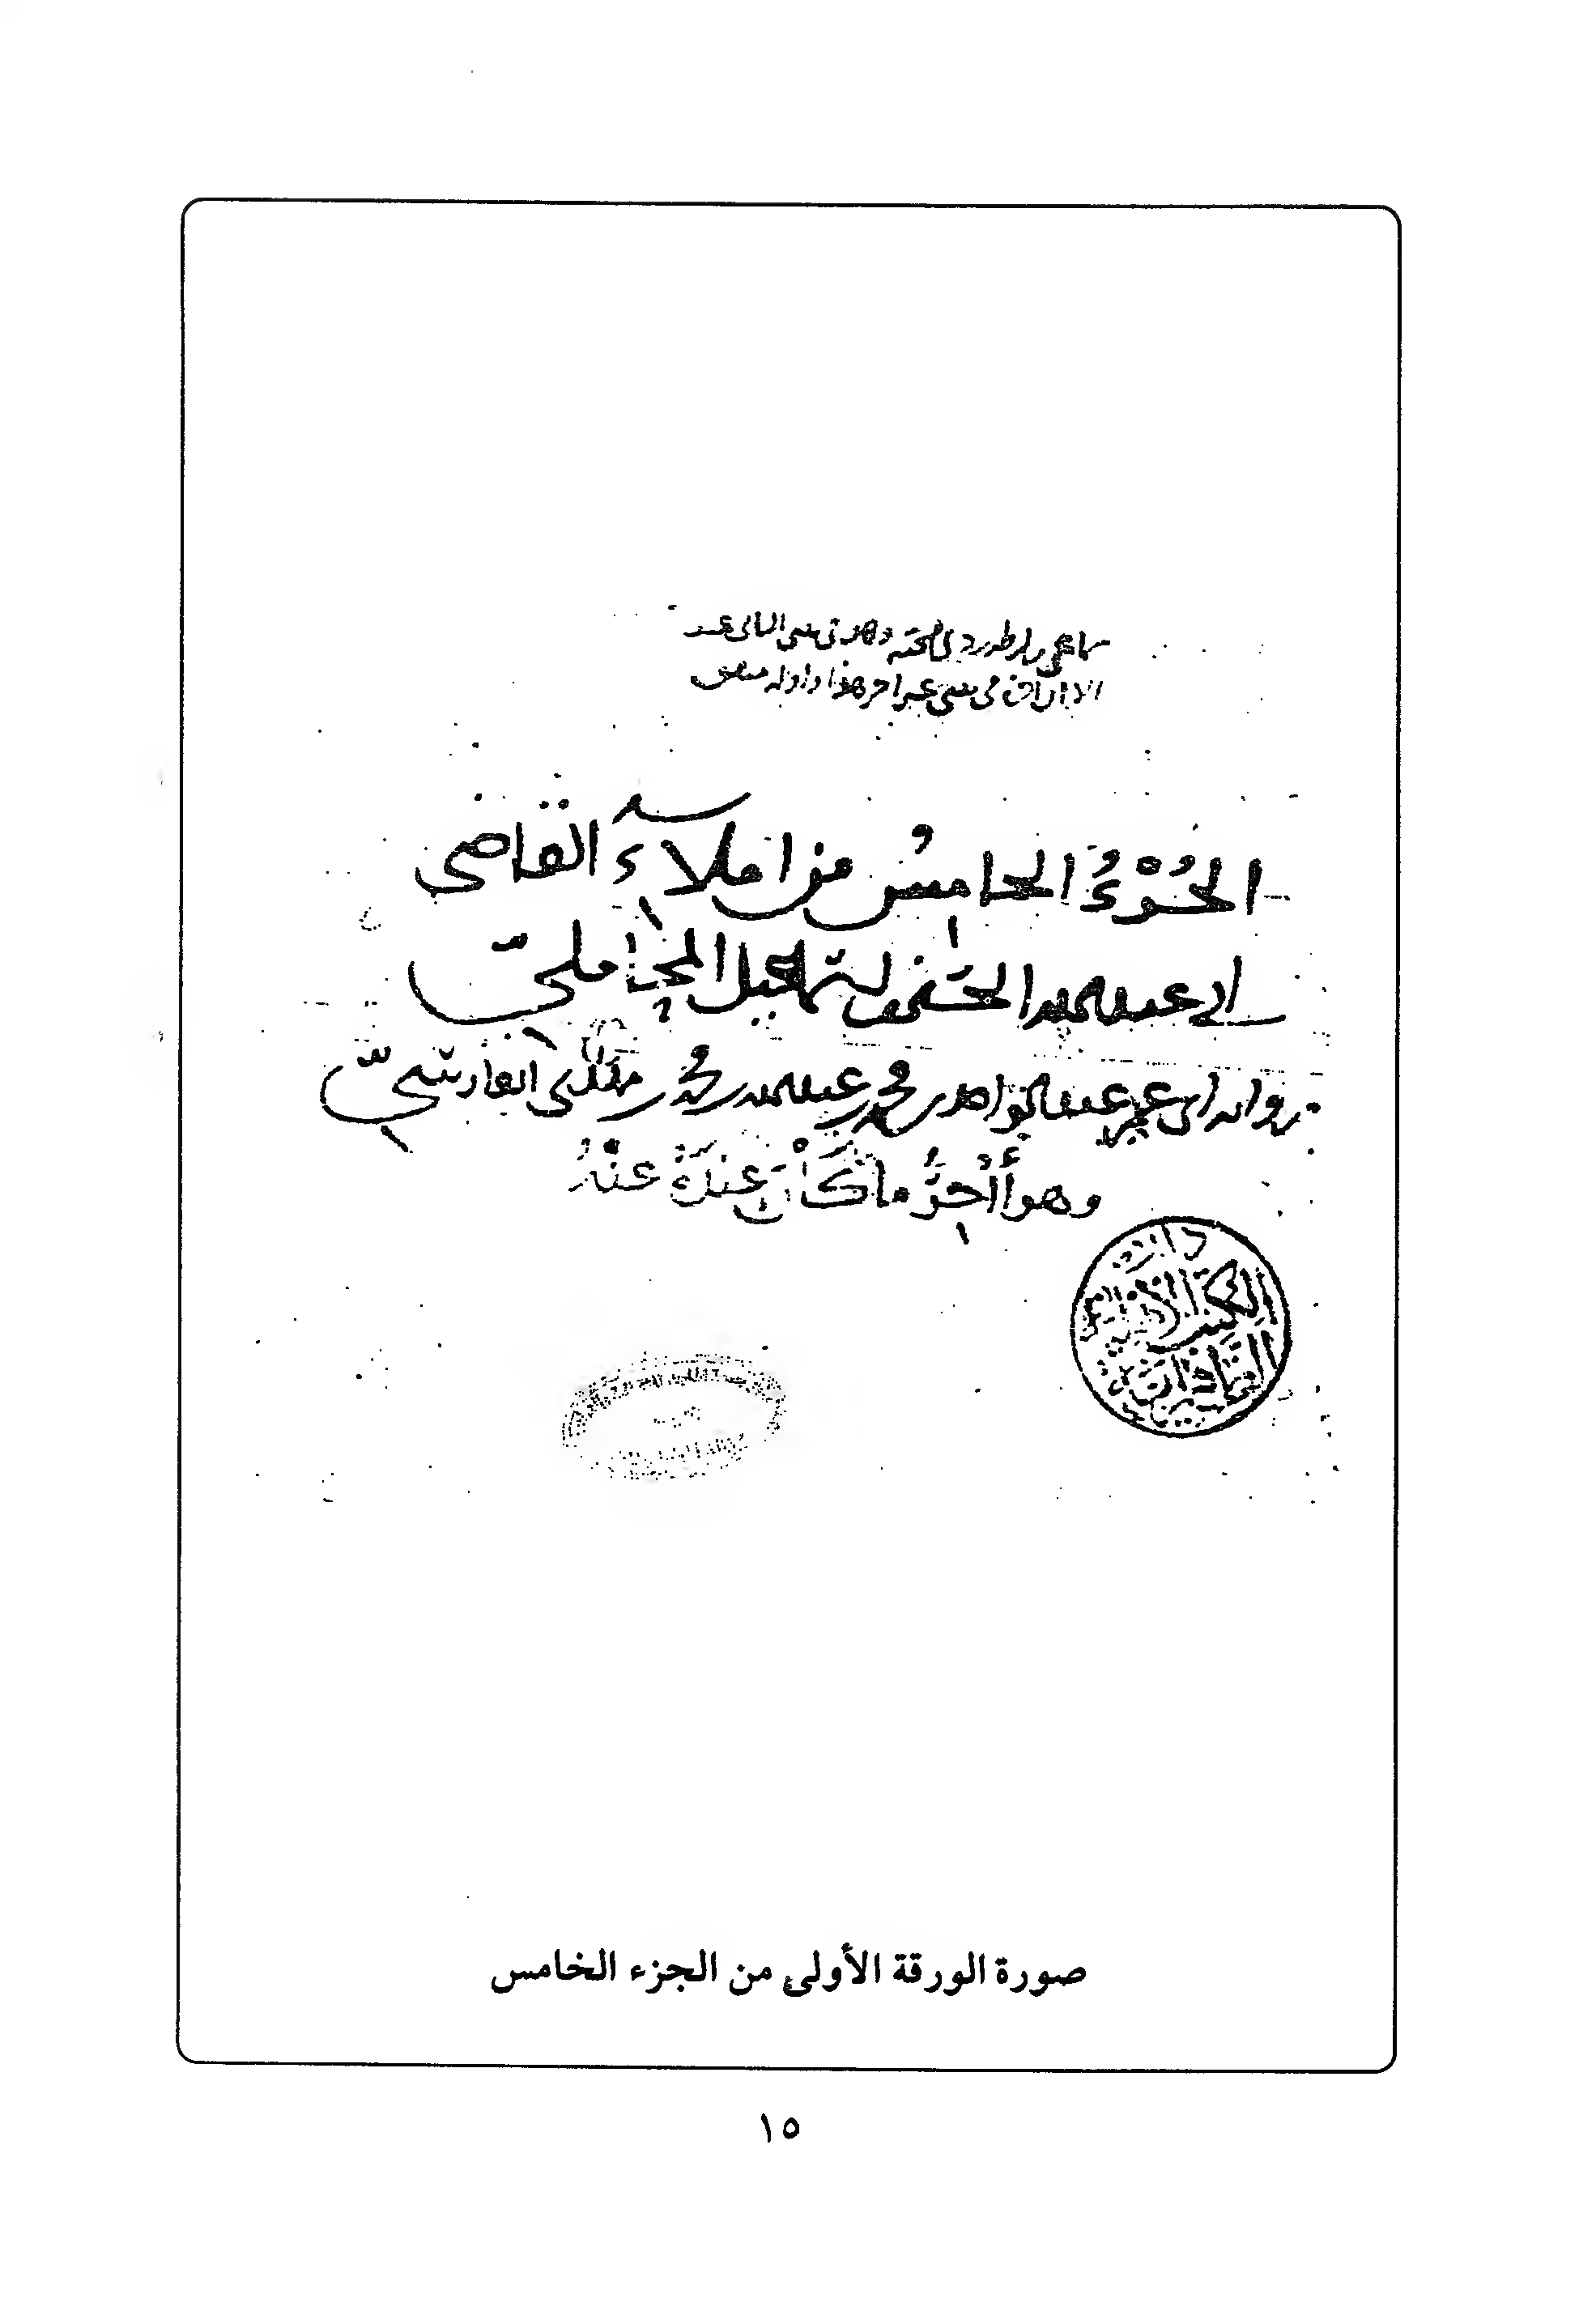 الجُزْءُ الخامسُ من املاءِ القاضي
ابي عبد الله الحسَين بن اسمعيل المحاملي
رواية ابي عمر عبد الواحد بن محمد بن عبد الله بن محمد بن مهدي الفارسيّ
وهو أأخِرُ ما كَانَ عِندَهُ عنْهُ
دار
الكتب
الظاهرية
صورة الورقة الأولى من الجزء الخامس
١٥